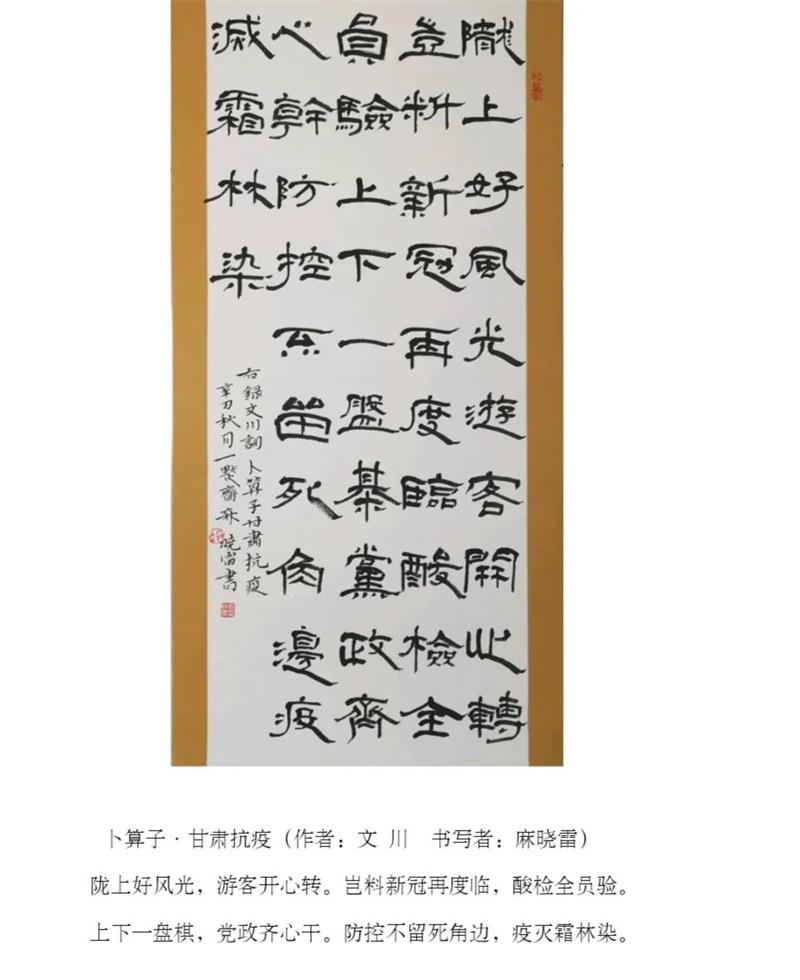 隴上好風光遊客開心轉
豈料新冠再度臨酸檢全
員驗上下一盤棊黨政齊
心幹防控不留死角邊疫
滅霜林染
右錄文川詞卜算子甘肅抗疫
辛丑秋月一齋麻曉雷書
卜算子·甘肃抗疫（作者：文 川　书写者：麻晓雷）
陇上好风光，游客开心转。岂料新冠再度临，酸检全员验。
上下一盘棋，党政齐心干。防控不留死角边，疫灭霜林染。